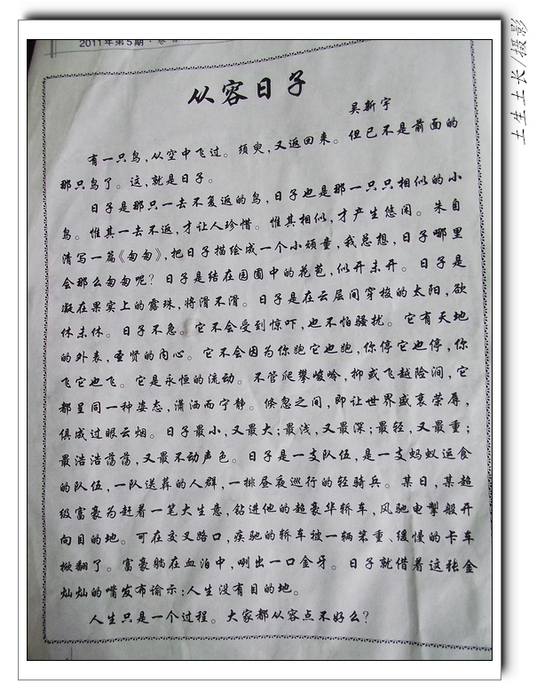 2011年第5期
从容日子
吴新宇
有一只鸟,从空中飞过。须臾,又返回来。但已不是前面的
那只鸟了。这,就是日子。
日子是那只一去不复返的鸟,日子也是那一只只相似的小
鸟。惟其一去不返,才让人珍惜。惟其相似,才产生悠闲。朱自
清写一篇《匆匆》,把日子描绘成一个小顽童,我总想,日子哪里
会那么匆匆呢?日子是结在园圃中的花苞,似开未开。日子是
凝在果实上的露珠,将滑不滑。日子是在云层间穿梭的太阳,欲
休未休。日子不急。它不会受到惊吓,也不怕骚扰。它有天地
的外表,圣贤的内心。它不会因为你跑它也跑,你停它也停,你
飞它也飞。它是永恒的流动。不管爬攀峻岭,抑或飞越险涧,它
都呈同一种姿态,潇洒而宁静。倏忽之间,即让世界盛衰荣辱,
俱成过眼云烟。日子最小,又最大;最浅,又最深;最轻,又最重;
最浩浩荡荡,又最不动声色。日子是一支队伍,是一支蚂蚁运食
的队伍,一队送葬的人群,一排昼夜巡行的轻骑兵。某日,某超
级富豪为赶着一笔大生意,钻进他的超豪华轿车,风驰电掣般开
向目的地。可在交叉路口,疾驰的轿车被一辆笨重、缓慢的卡车
掀翻了。富豪躺在血泊中,咧出一口金牙。日子就借着这张金
灿灿的嘴发布谕示:人生没有目的地。
人生只是一个过程。大家都从容点不好么?
土生土长/摄影